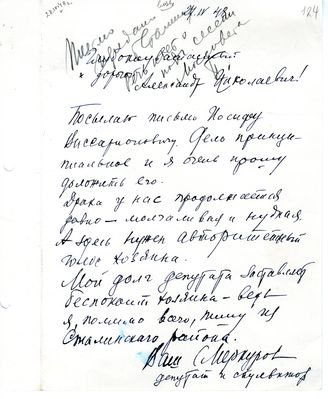 24.IV 48
124
Глубокоуважаемый
и дорогой
Александр Николаевич!
Посылаю письмо Иосифу
Виссарионовичу. Дело принци-
пиальное и я очень прошу
доложить его.
Драка у нас продолжается
давно – молчаливая и нудная.
А здесь нужен авторитетный
голос хозяина.
Мой долг депутата заставляет
беспокоить хозяина – ведь
я, помимо всего, пишу из
Сталинского района.
Ваш С Меркуров
депутат и скульптор